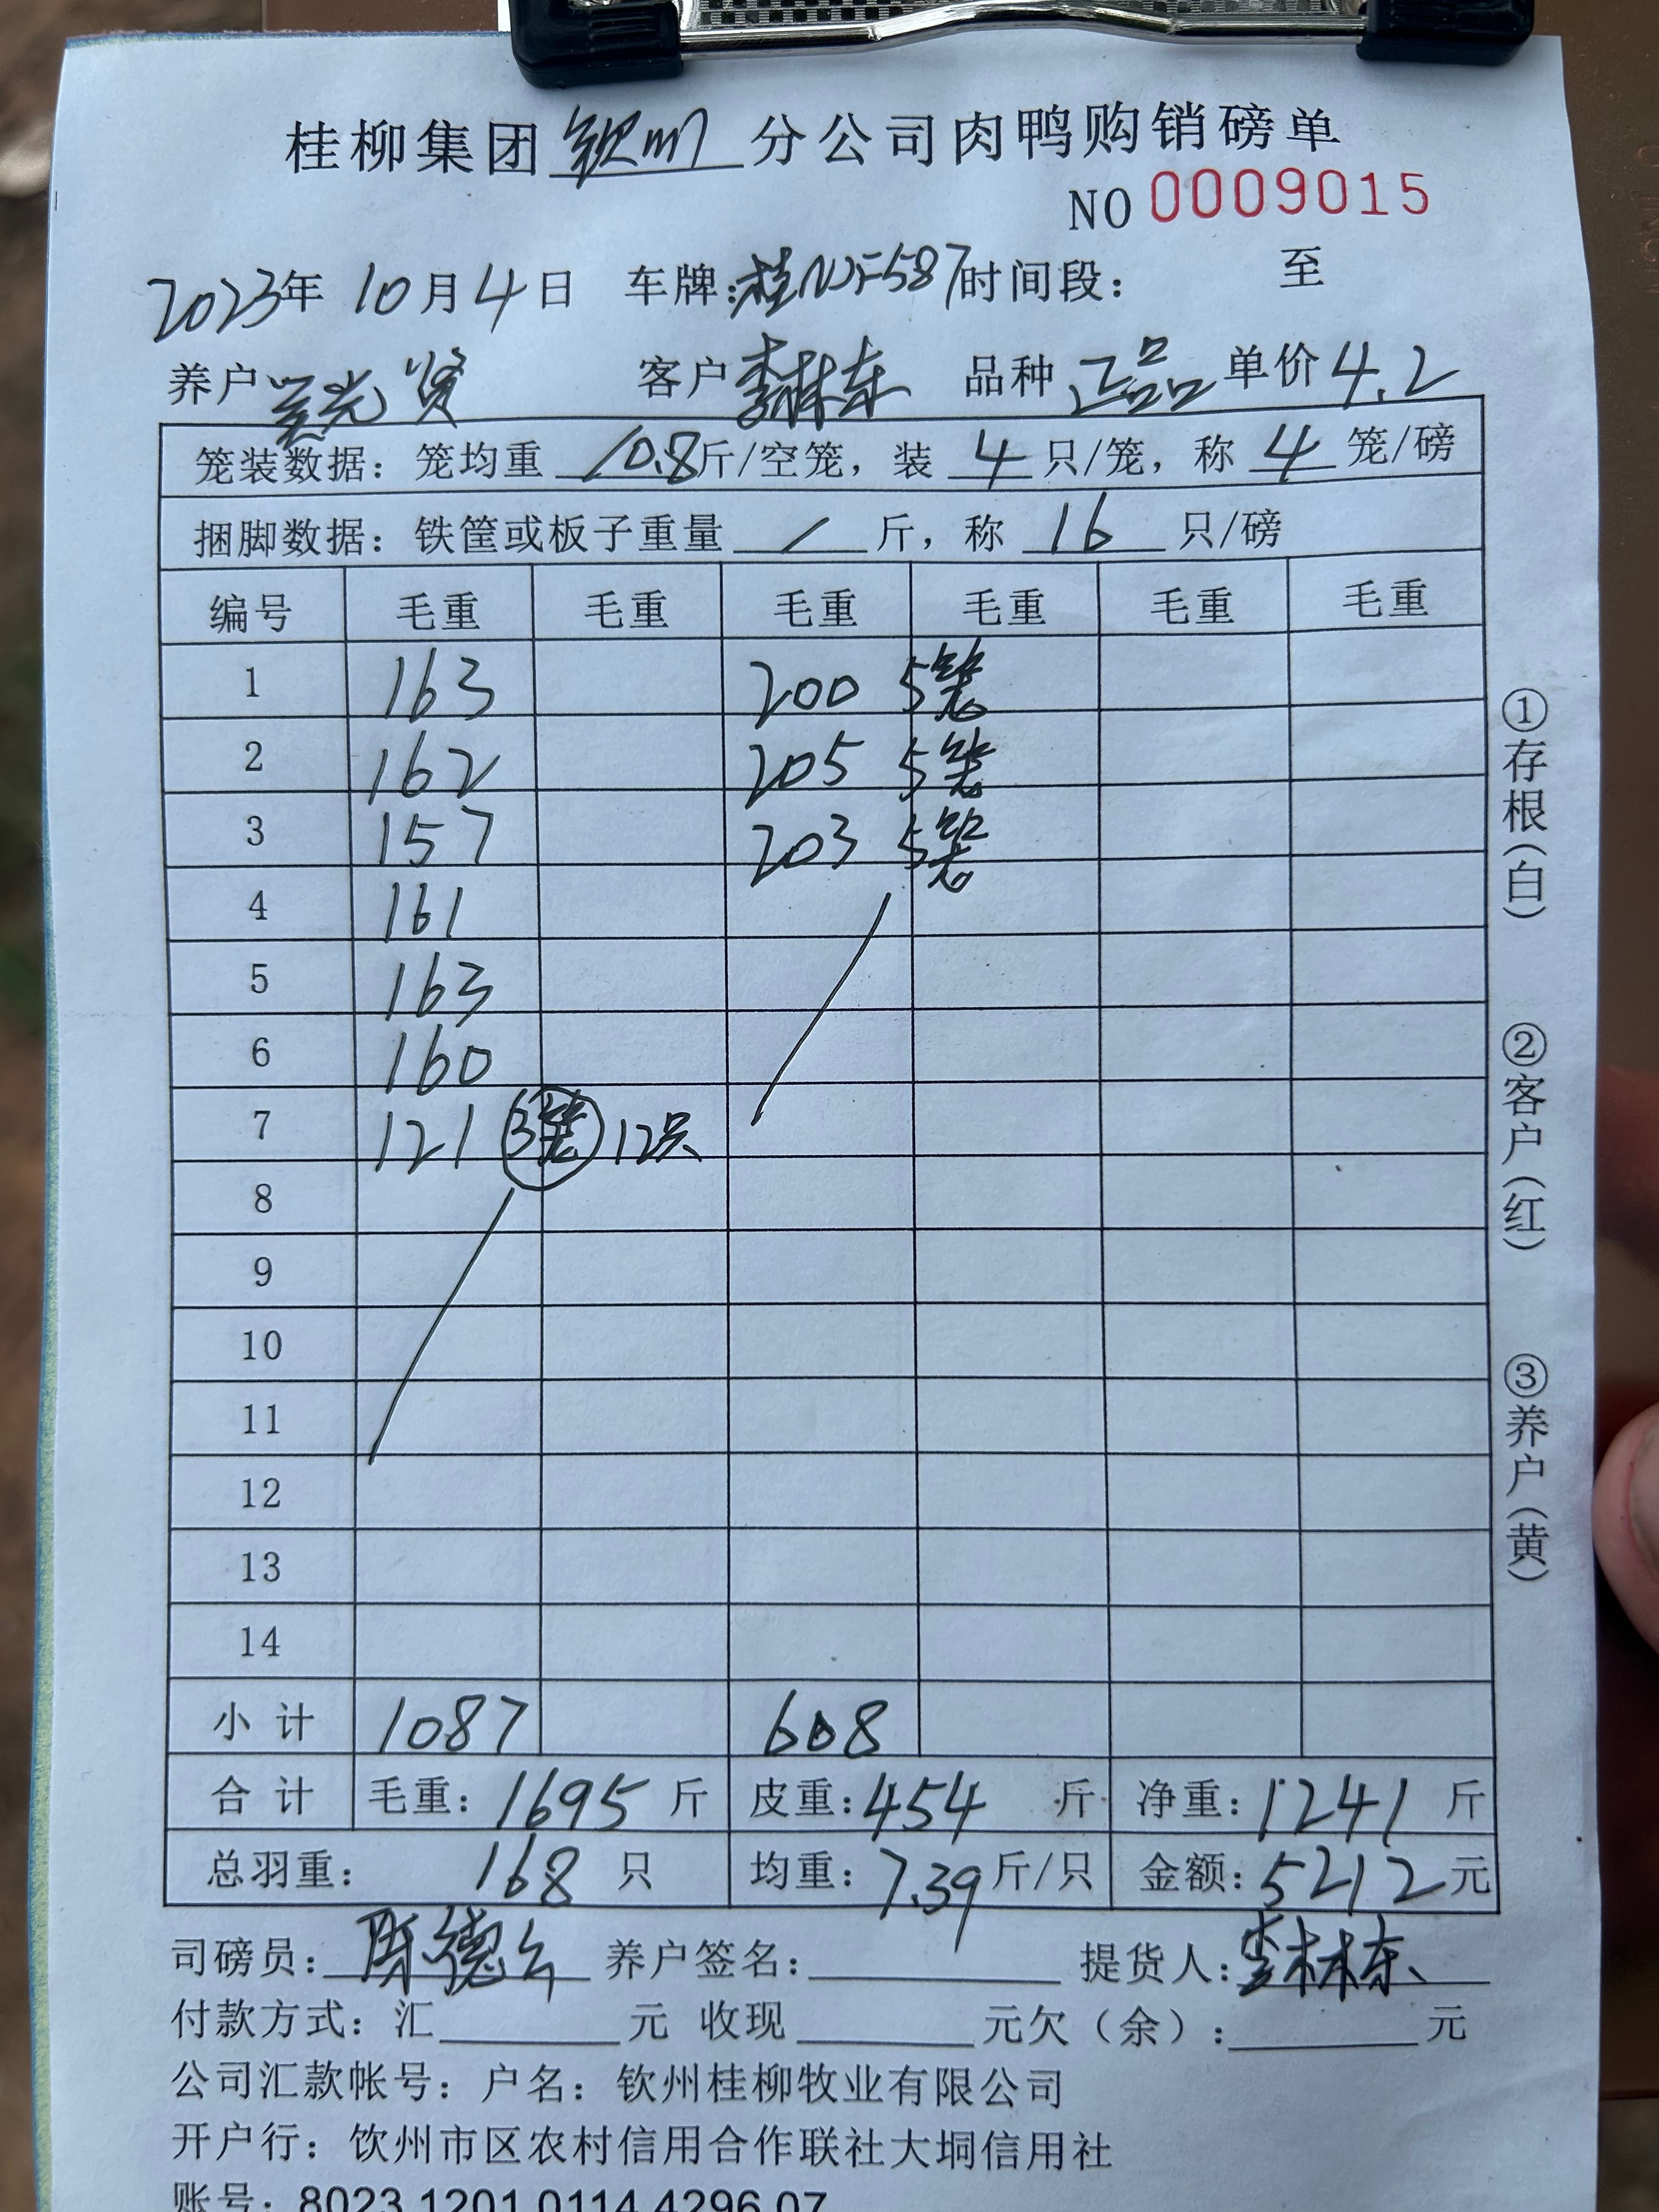 桂柳集团钦州分公司肉鸭购销磅单
NO 0009015
2023年 10月4日 车牌:桂NJF587时间段: 至
养户 吴光贤 客户李林东 品种 正品 单价4.2
笼装数据: 笼均重 10.8斤/空笼, 装 4 只/笼, 称 4 笼/磅
捆脚数据: 铁筐或板子重量 / 斤, 称 16 只/磅
编号 毛重 毛重 毛重 毛重 毛重 毛重
1 163 200 5笼
2 162 205 5笼
3 157 203 5笼
4 161
5 163
6 160
7 121 3笼 12只
8
9
10
11
12
13
14
小计 1087 608
合计 毛重: 1695 斤 皮重:454 斤 净重:1241 斤
总羽重: 168 只 均重:7.39斤/只 金额:5212元
司磅员: 陈德 养户签名: 提货人:李林东
付款方式: 汇 元 收现 元欠(余): 元
公司汇款帐号: 户名: 钦州桂柳牧业有限公司
开户行: 饮州市区农村信用合作联社大垌信用社
账号: 8023 1201 0114 4296 07
①存根(白)
②客户(红)
③养户(黄)